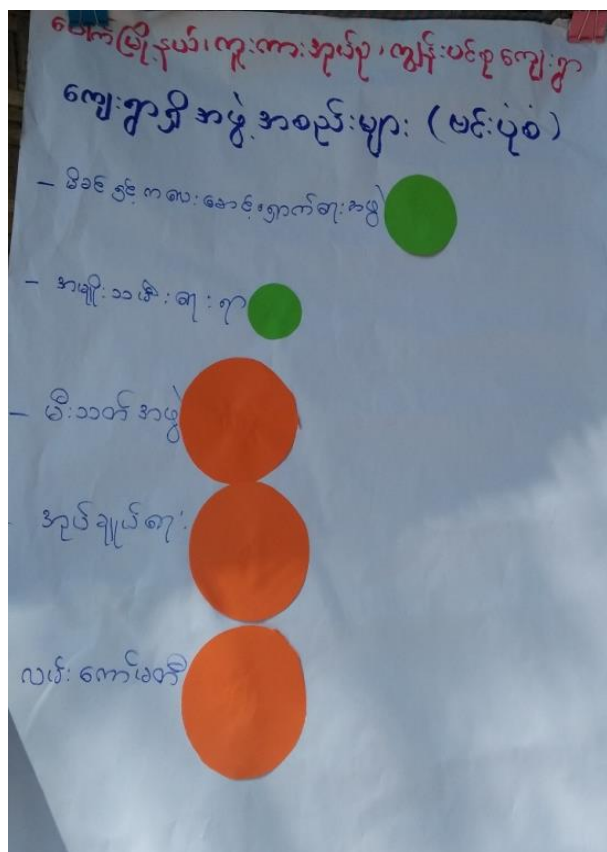 ပေါက်မြို့နယ်၊ ကူးကားအုပ်စု၊ ကျွန်းပင်စု ကျေးရွာ
ကျေးရွာရှိ အဖွဲ့အစည်းများ (ဗင်းပုံစံ)
- မိခင်နှင့် ကလေးစောင့်ရှောက်ရေးအဖွဲ့
- အမျိုးသမီးရေးရာ
- မီးသတ်အဖွဲ့
- အုပ်ချုပ်ရေး
လမ်းကော်မတီ